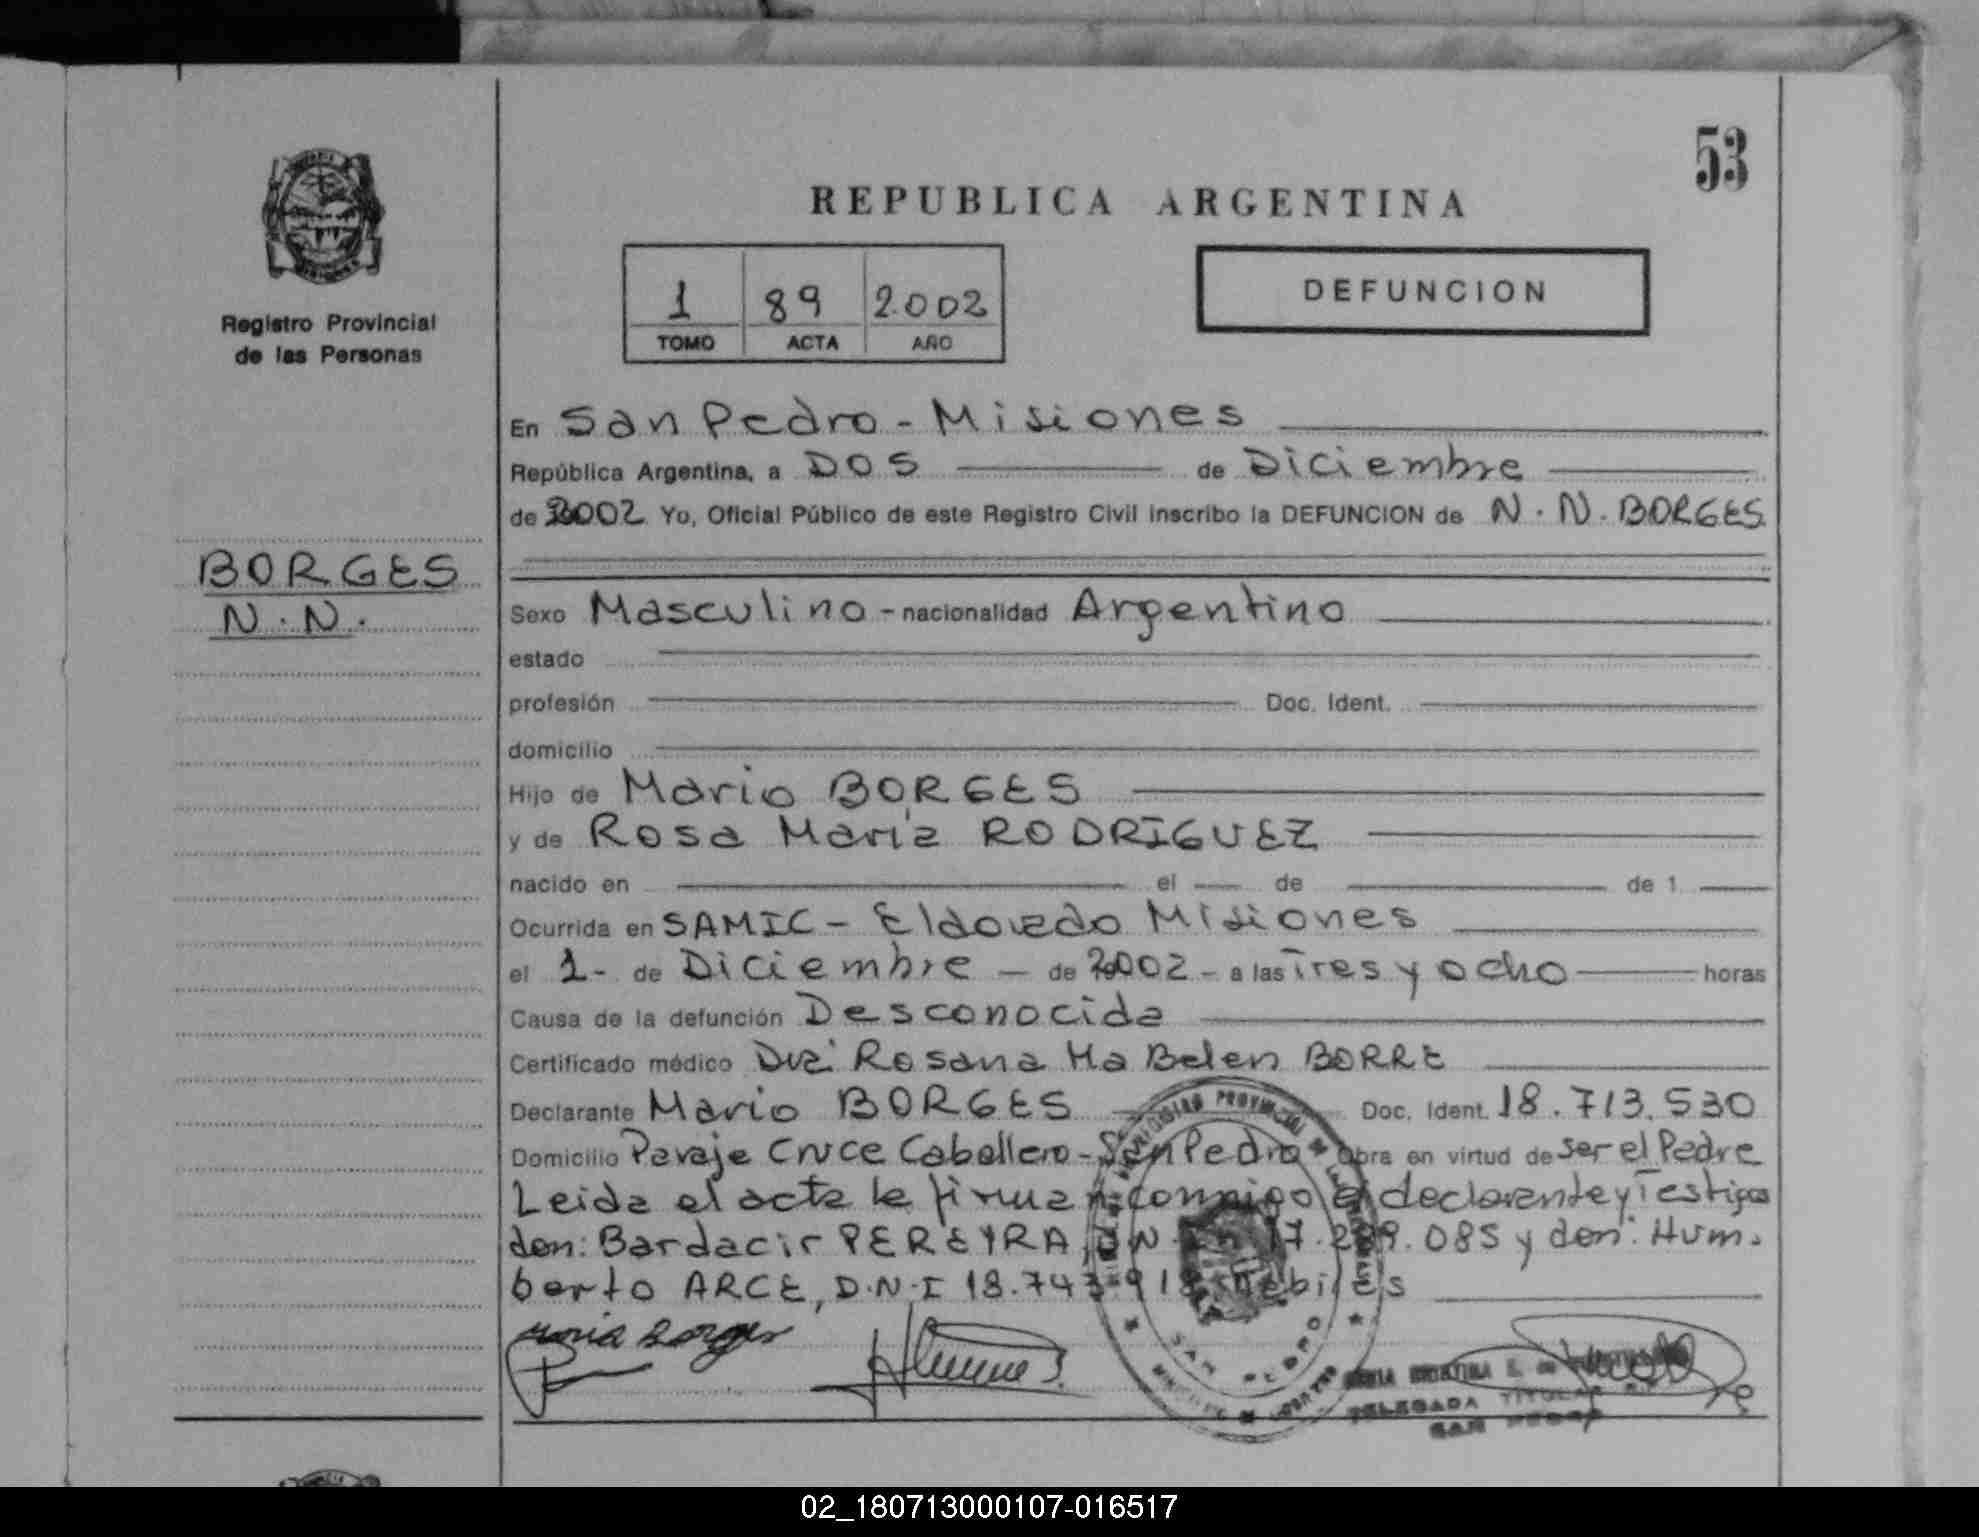 53
REPUBLICA ARGENTINA
Registro Provincial
de las Personas
1 89 2.002
TOMO ACTA AÑO
DEFUNCION
BORGES
N.N.
En San Pedro - Misiones
República Argentina, a DOS de Diciembre
de 2002 Yo, Oficial Público de este Registro Civil inscribo la DEFUNCION de N.N. BORGES
Sexo Masculino - nacionalidad Argentino
estado
profesión Doc. Ident.
domicilio
Hijo de Mario BORGES
y de Rosa María RODRIGUEZ
nacido en el de de 1
Ocurrida en SAMIC - Eldorado Misiones
el 1 - de Diciembre - de 2002 - a las Tres y ocho horas
Causa de la defunción Desconocida
Certificado médico Dra Rosana Ma Belen BORRE
Declarante Mario BORGES Doc. Ident. 18.713.530
Domicilio Paraje Cruce Caballero - San Pedro Obra en virtud de ser el Padre
Leida el acta la firman conmigo el declarante y Testigos
don: Bardacir PEREYRA, D.N.I 17.289.085 y don: Hum-
berto ARCE, D.N.I 18.743.918 Hábiles
Mario Borges
SAN PEDRO
DELEGADA TITULAR
SAN PEDRO
02_180713000107-016517